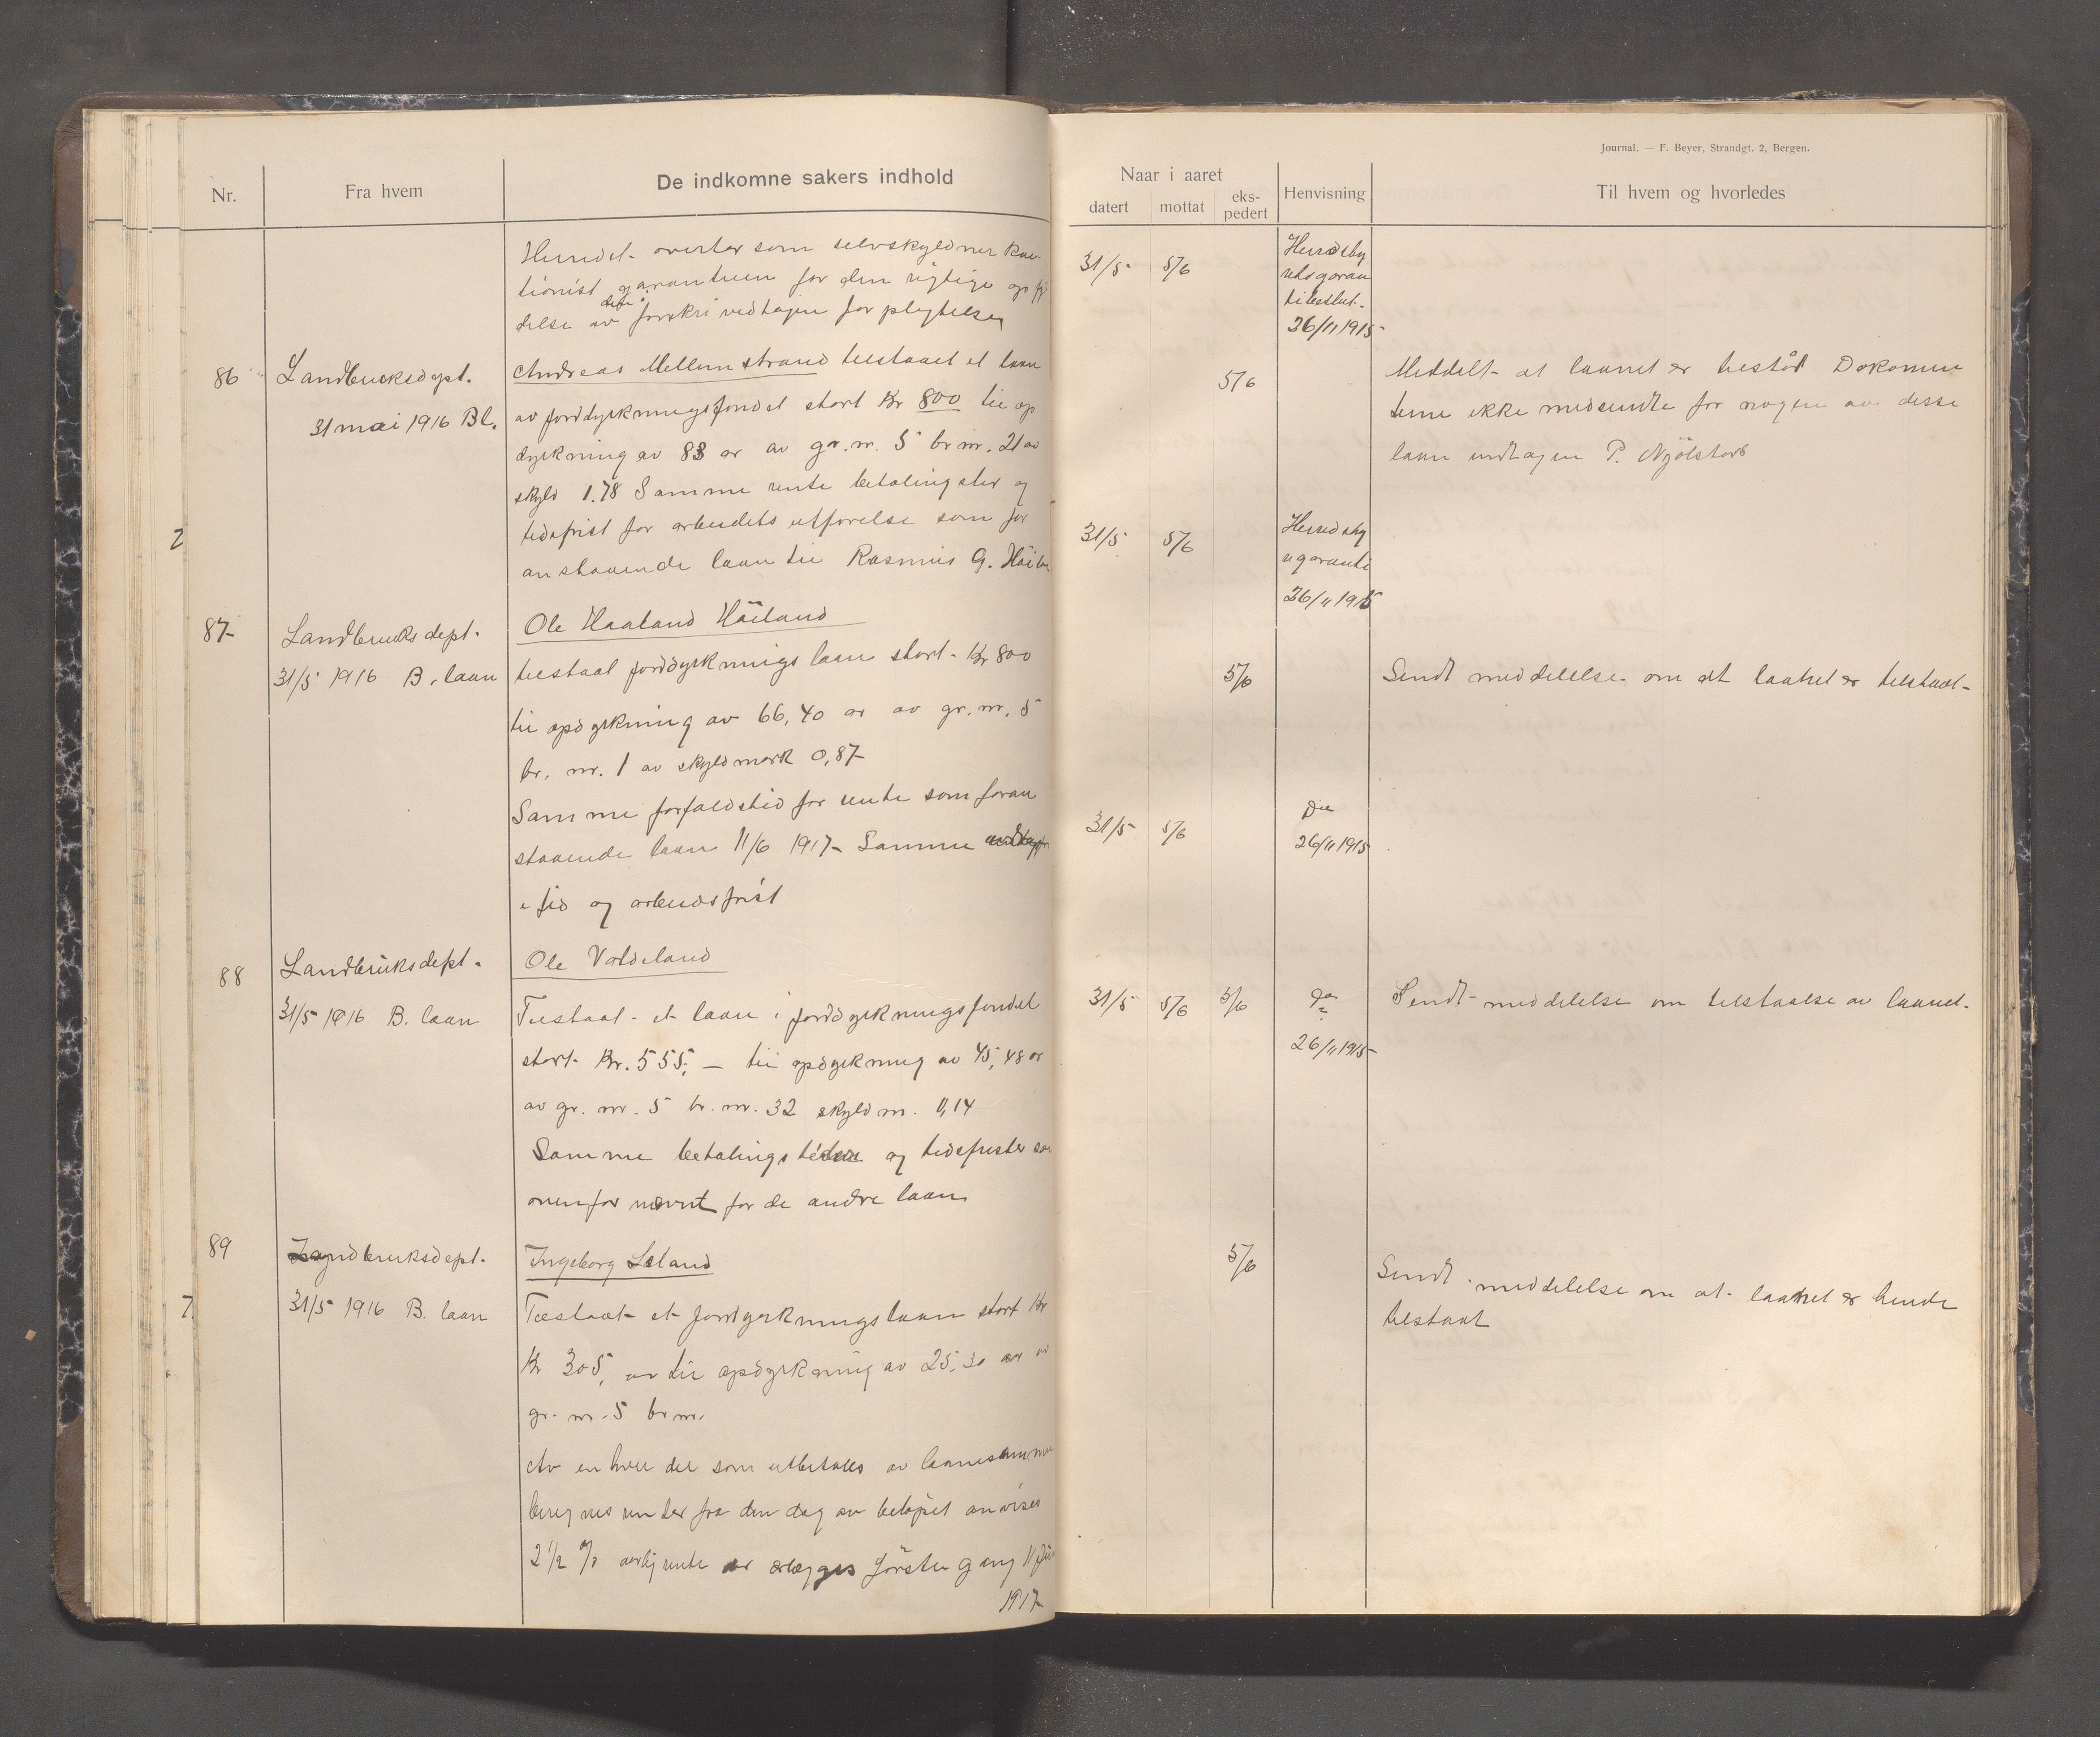 Journal. — F. Beyer, Strandgt. 2, Bergen.
Nr.
Fra hvem
De indkomne sakers indhold
Naar i aaret
datert
mottat
eks-
pedert
Henvisning
Til hvem og hvorledes
Herredet overtar som selvskyldner kau
tionist garantien for den rigtige opfyl
delse av forskrivedtagne forpligtelser
86
Landbruksdept.
31 mai 1916 Bl.
Andreas Mellemstrand tilstaaet et laan
av jorddyrkningsfondet stort Kr 800 til op
dyrkning av 83 ar av gr. nr. 5 br nr. 21 av
skyld 1.78 Samme rente betalingster og
tidsfrist for arbeidets utførelse som for
anstaaende laan til Rasmus G.
2
87
Landbruksdept.
31/5 1916 B. laan
Ole Haaland Häiland
tilstaat jorddyrkningslaan stort Kr 800
til opdyrkning av 66,40 ar av gr. nr. 5
br. nr. 1 av skyldmark 0,87
Samme forfaldstid for rente som foran
staaende laan 11/6 1917 Samme
tid og arbeidsfrist
88
Landbruksdept.
31/5 1916 B. laan
Ole Valdeland
Tilstaat et laan i jorddyrkningsfondet
stort Kr. 555, — til opdyrkning av 45,48 ar
av gr. nr. 5 br. nr. 32 skyld m. 1,14
Samme betalings og tidsfrister som
ovenfor nævnt for de andre laan
89
Landbruksdept.
31/5 1916 B. laan
7
Ingeborg Leland
Tilstaat et jorddyrkningslaan stort Kr
Kr 305, til opdyrkning av 25,30 ar av
gr. nr. 5 br nr.
Av enhver del som utbetales av laanesummen
beregnes renter fra den dag av beløpet anvises
2 1/2 % aarlig rente erlægges første gang 11 Juni
1917
31/5 5/6
Herredsty
rets garan
tibeslut.
26/11 1915
5/6
Meddelt at laanet er Dokumen
terne ikke medsendte for nogen av disse
laan undtagen P. Njølstad
31/5 5/6
Herredsty
garanti
26/11 1915
5/6
Sendt meddelelse om at laanet er tilstaat
31/5 5/6
Do
26/11 1915
31/5 5/6 5/6
Do
26/11 1915
Sendt meddelelse om tilstaalse av laanet.
5/6
Sendt meddelelse om at laanet er hende
tilstaat